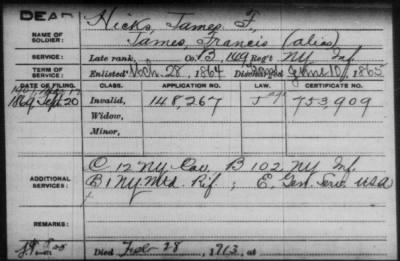 DEAD
NAME OF SOLDIER: Hicks, James F.,
James, Francis (alias)
SERVICE: Late rank, Co. B, 149 Reg't NY Inf.
TERM OF SERVICE: Enlisted 28, 1864 Discharged 10, 1865
DATE OF FILING. CLASS. APPLICATION NO. LAW. CERTIFICATE NO.
1869 Sept. 20 Invalid, 148,267 753,909
Widow,
Minor,
C 12 NY Cav. B 102 NY Inf.
ADDITIONAL SERVICES: B 1 NY Mtd. Rif.; E. Gen. Serv. USA
REMARKS:
Died Feb 28, 1913, at